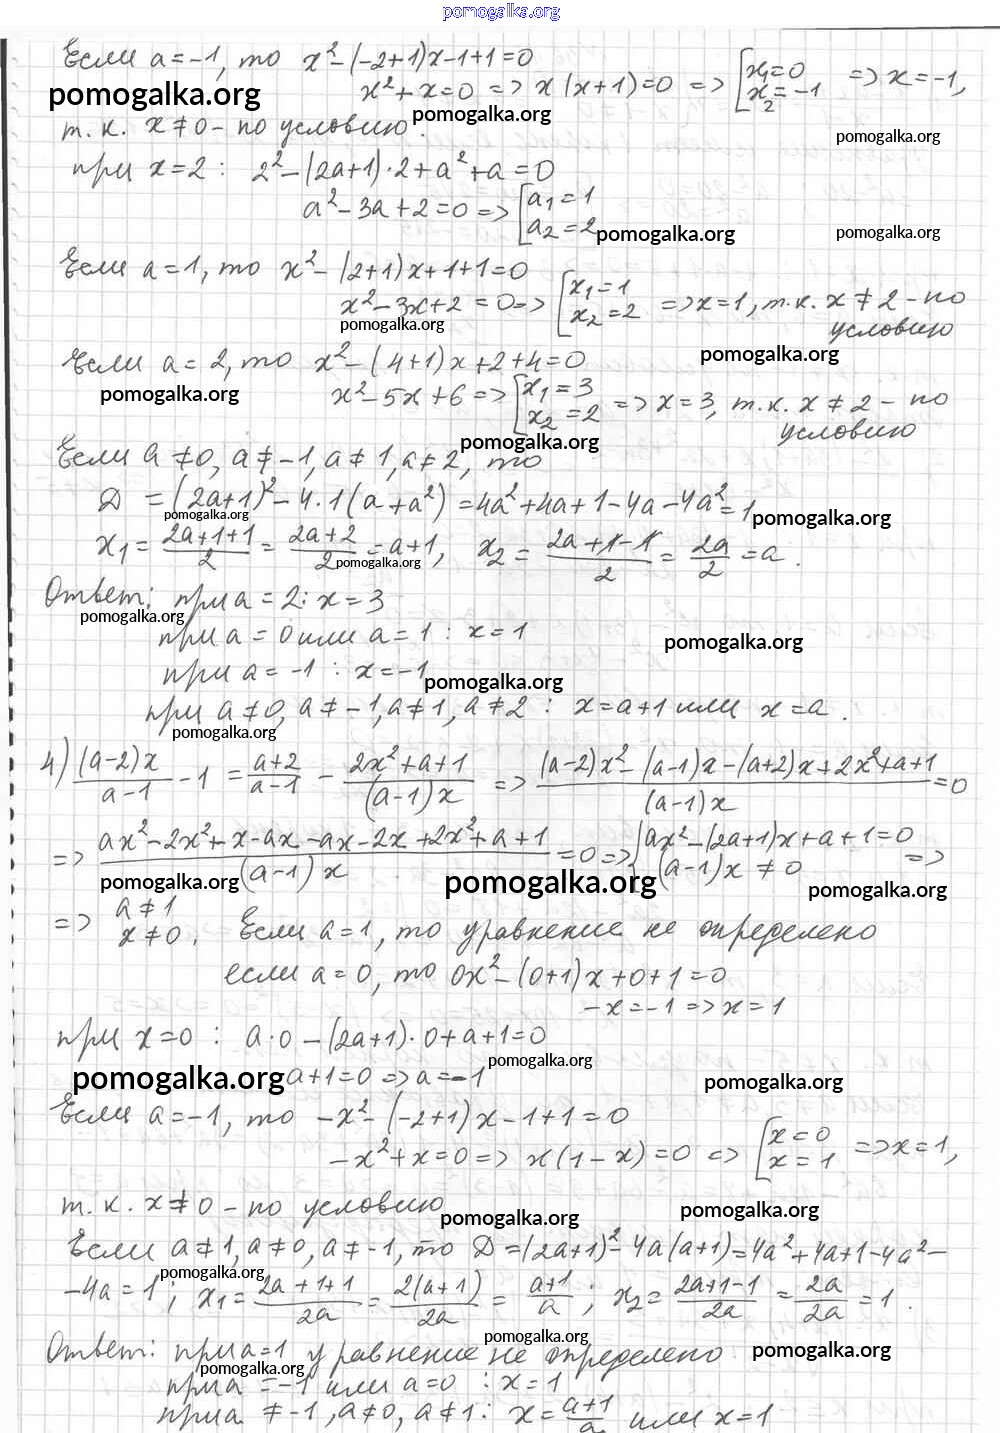 pomogalka.org
Если a = -1, то x² - (-2+1)x - 1 + 1 = 0
x² + x = 0 => x(x+1) = 0 => [x₁ = 0 x₂ = -1 => x = -1,
pomogalka.org pomogalka.org
т.к. x ≠ 0 - по условию. pomogalka.org
при x = 2 : 2² - (2a+1)·2 + a² + a = 0
a² - 3a + 2 = 0 => [a₁ = 1 a₂ = 2
pomogalka.org pomogalka.org
Если a = 1, то x² - (2+1)x + 1 + 1 = 0
x² - 3x + 2 = 0 => [x₁ = 1 x₂ = 2 => x = 1, т.к. x ≠ 2 - по
условию
pomogalka.org
Если a = 2, то x² - (4+1)x + 2 + 4 = 0 pomogalka.org
pomogalka.org x² - 5x + 6 => [x₁ = 3 x₂ = 2 => x = 3, т.к. x ≠ 2 - по
условию
pomogalka.org
Если a ≠ 0, a ≠ -1, a ≠ 1, a ≠ 2, то
D = (2a+1)² - 4·1(a+a²) = 4a² + 4a + 1 - 4a - 4a² = 1
pomogalka.org pomogalka.org
x₁ = (2a+1+1)/2 = (2a+2)/2 = a+1, x₂ = (2a+1-1)/2 = 2a/2 = a.
pomogalka.org
Ответ: при a = 2: x = 3
pomogalka.org
при a = 0 или a = 1 : x = 1 pomogalka.org
при a = -1 : x = -1 pomogalka.org
при a ≠ 0, a ≠ -1, a ≠ 1, a ≠ 2 : x = a+1 или x = a.
pomogalka.org
4) (a-2)x/(a-1) - 1 = (a+2)/(a-1) - (2x²+a+1)/((a-1)x) => ((a-2)x² - (a-1)x - (a+2)x + 2x² + a + 1)/((a-1)x) = 0
=> (ax² - 2x² + x - ax - ax - 2x + 2x² + a + 1)/((a-1)x) = 0 => {ax² - (2a+1)x + a + 1 = 0 (a-1)x ≠ 0 =>
pomogalka.org pomogalka.org pomogalka.org
=> a ≠ 1 x ≠ 0. Если a = 1, то уравнение не определено
если a = 0, то 0x² - (0+1)x + 0 + 1 = 0
-x = -1 => x = 1
при x = 0 : a·0 - (2a+1)·0 + a + 1 = 0
pomogalka.org
pomogalka.org a + 1 = 0 => a = -1 pomogalka.org
Если a = -1, то -x² - (-2+1)x - 1 + 1 = 0
-x² + x = 0 => x(1-x) = 0 => [x = 0 x = 1 => x = 1,
т.к. x ≠ 0 - по условию
pomogalka.org pomogalka.org
Если a ≠ 1, a ≠ 0, a ≠ -1, то D = (2a+1)² - 4a(a+1) = 4a² + 4a + 1 - 4a² -
pomogalka.org
- 4a = 1 ; x₁ = (2a+1+1)/2a = 2(a+1)/2a = (a+1)/a ; x₂ = (2a+1-1)/2a = 2a/2a = 1.
pomogalka.org
Ответ: при a = 1 уравнение не определено pomogalka.org
pomogalka.org
при a = -1 или a = 0 : x = 1
при a ≠ -1, a ≠ 0, a ≠ 1 : x = (a+1)/a или x = 1